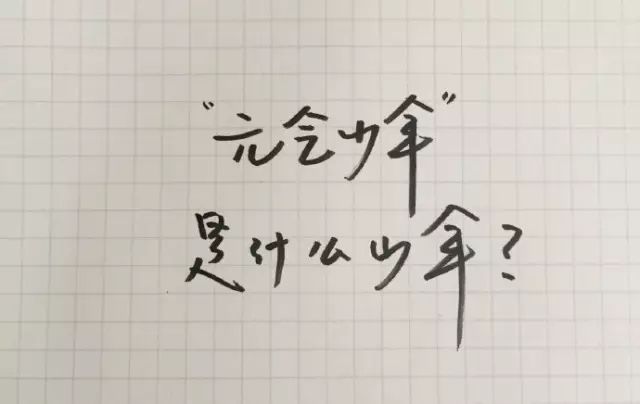 “元气少年”
是什么少年？